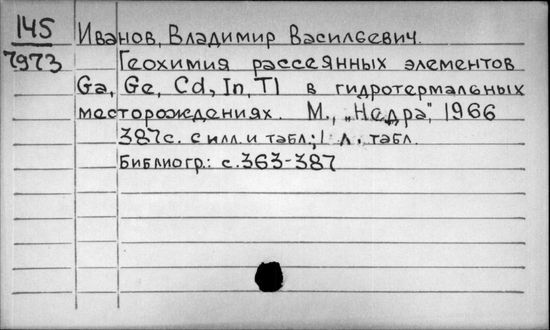 145 Иванов, Владимир Васильевич.
7973 Геохимия рассеянных элементов
Ga, Ge, Cd, In, Tl в гидротермальных
месторождениях. М., „Недра", 1966
387с. с илл. и табл.; 1 л. табл.
Библиогр.: с.363-387